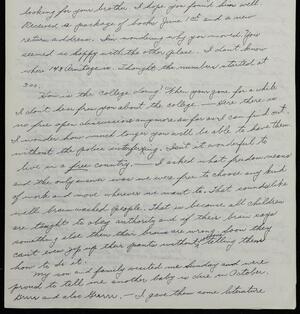 looking for your brother I hope you found him well.
Received a package of books June 1st and a new
return address. I'm wondering why you moved. You
seemed so happy with the other place. I don't know
where 148 Armitage is. Thought the numbers started at
300.
How is the college doing? Then you gone for a while
I don't hear from you about the college — Here there is
no free open discussions anymore as far as I can find out.
I wonder how much longer you will be able to have them
without the police interfering. Isn't it wonderful to
live in a free country. — I asked what freedom means
and the only answer was we were free to choose any kind
of work and move wherever we want to. That sounds like
well brain washed people. That is because all children
are taught to obey authority and if their brain says
something else then their brains are wrong. Soon they
can't even zip up their pants without telling them
how to do it.
My son and family visited me Sunday and were
proud to tell me another baby is due in October.
Brrr and also Grrrrr. — I gave them some literature